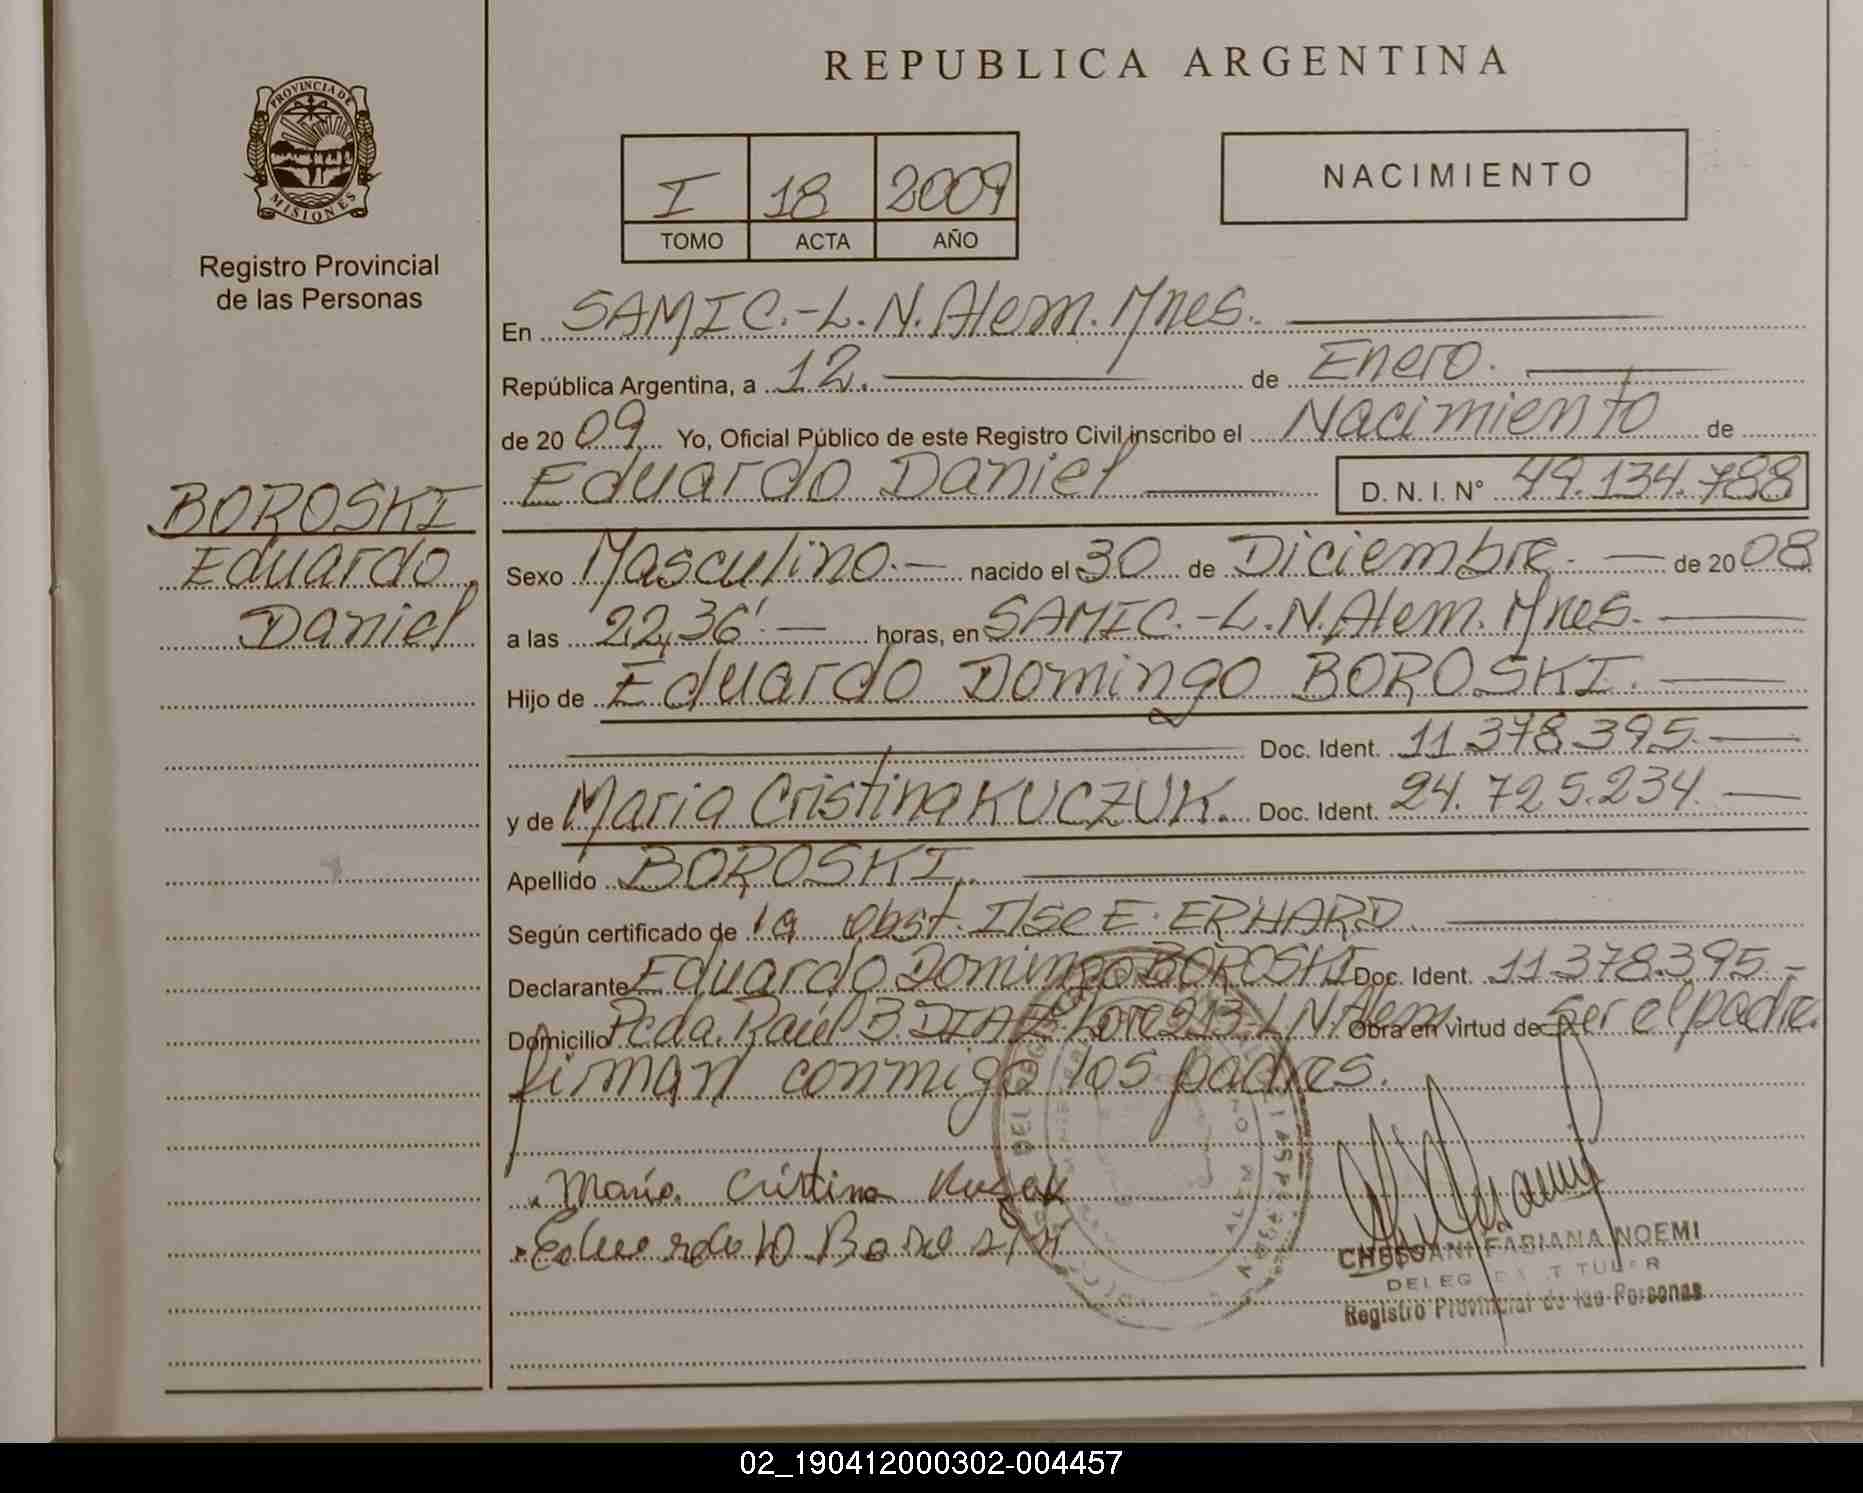 REPUBLICA ARGENTINA
PROVINCIA DE
MISIONES
Registro Provincial
de las Personas
I 18 2009
TOMO ACTA AÑO
NACIMIENTO
En SAMIC.-L.N.Alem.Mnes.
República Argentina, a 12. de Enero.
de 20 09 Yo, Oficial Público de este Registro Civil inscribo el Nacimiento de
Eduardo Daniel D. N. I. N° 49.134.788
BOROSKI
Eduardo
Daniel
Sexo Masculino.- nacido el 30 de Diciembre.- de 20 08
a las 22,36'.- horas, en SAMIC.-L.N.Alem.Mnes.
Hijo de Eduardo Domingo BOROSKI.
Doc. Ident. 11.378.395.
y de Maria Cristina KUCZUK. Doc. Ident. 24.725.234.
Apellido BOROSKI.
Según certificado de la Obst. Ilse E. ERHARD.
Declarante Eduardo Domingo BOROSKI Doc. Ident. 11.378.395.-
Domicilio Pcda. Raúl B. DIAZ. Lote 213-L N. Alem. Obra en virtud de ser el padre.
firman conmigo los padres.
Maria Cristina
CHESOANI FABIANA NOEMI
Registro Provincial de las Personas
02_190412000302-004457